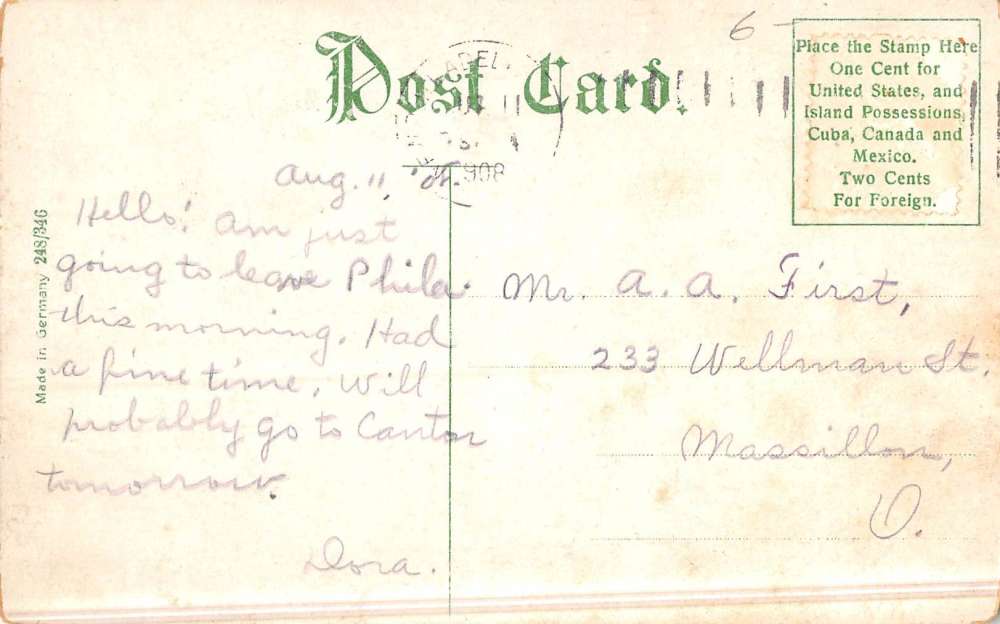 Post Card.
6
Place the Stamp Here
One Cent for
United States, and
Island Possessions,
Cuba, Canada and
Mexico.
Two Cents
For Foreign.
1908
Made in Germany 248/346
Aug. 11, '08.
Hello! Am just
going to leave Phila.
this morning. Had
a fine time. Will
probably go to Canton
tomorrow.
Dora.
Mr. A. A. First,
233 Wellman St.
Massillon,
O.